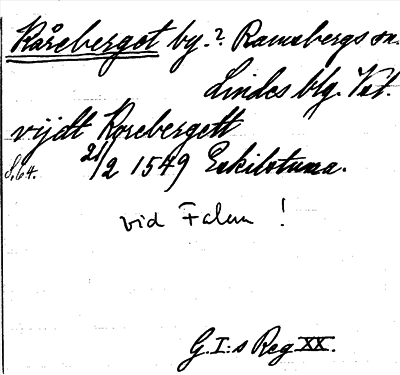 Kårebergot by.? Ramsbergs sn.
Lindes blg. Vst.
vijdt Korebergett
s. 64. 21/2 1549 Eskilstuna.
vid Falun !
G.I:s Reg XX.